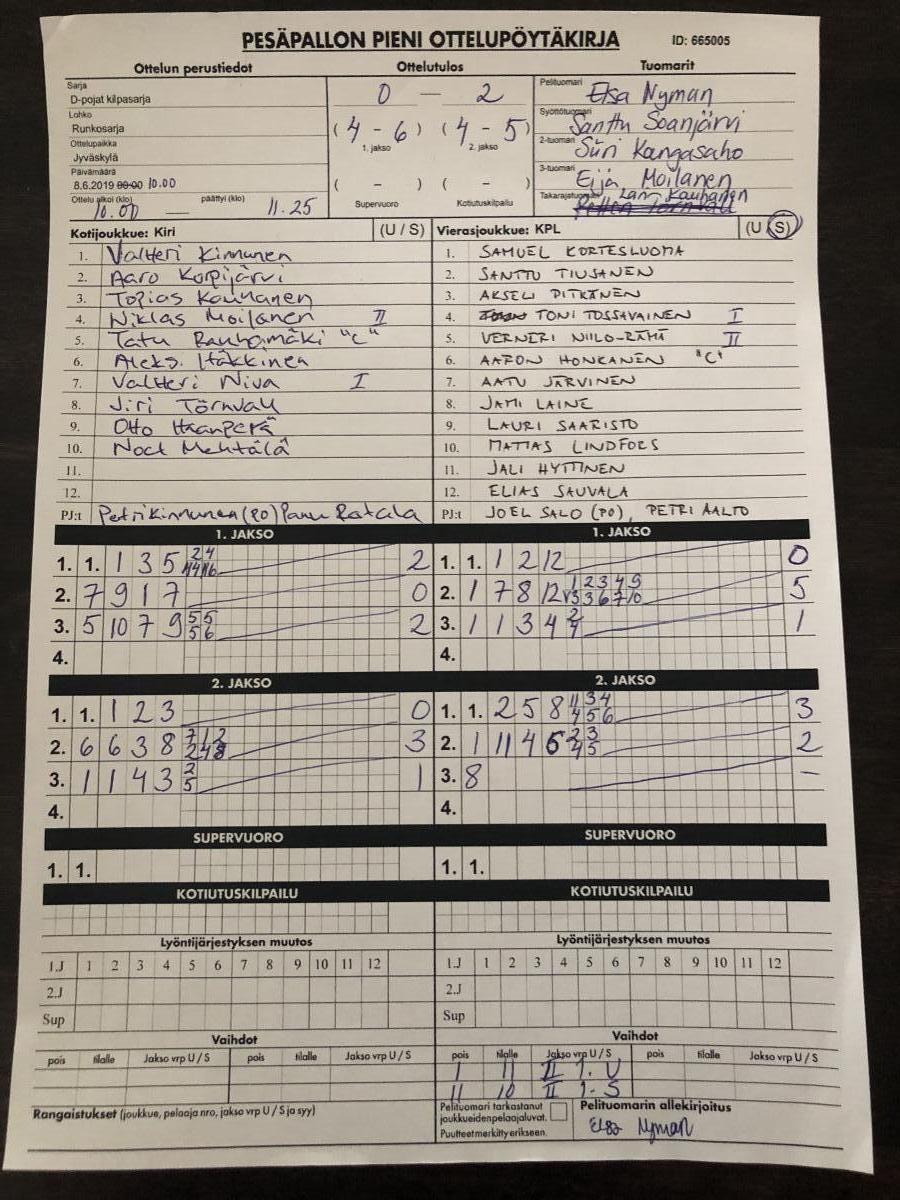 PESÄPALLON PIENI OTTELUPÖYTÄKIRJA ID: 665005
Ottelun perustiedot Ottelutulos Tuomarit
Sarja
D-pojat kilpasarja
Lohko
Runkosarja
Ottelupaikka
Jyväskylä
Päivämäärä
8.6.2019 00:00 10.00
Ottelu alkoi (klo) päättyi (klo)
10.00 — 11.25
0 — 2
(4 - 6) (4 - 5)
1. jakso 2. jakso
( - ) ( - )
Supervuoro Kotiutuskilpailu
Pelituomari Elsa Nyman
Syöttötuomari Santtu Soanjärvi
2-tuomari Siiri Kangasaho
3-tuomari Eija Moilanen
Takarajatuomari Lari Kauhanen
Kotijoukkue: Kiri (U / S) Vierasjoukkue: KPL (U / S)
1. Valtteri Kinnunen 1. SAMUEL KORTESLUOMA
2. Aaro Korpijärvi 2. SANTTU TIUSANEN
3. Topias Kauhanen 3. AKSELI PITKÄNEN
4. Niklas Moilanen II 4. TONI TOSSAVAINEN I
5. Tatu Rauhamäki "C" 5. VERNERI NIILO-RÄMÄ II
6. Aleksi Häkkinen 6. AARON HONKANEN "C"
7. Valtteri Niva I 7. AATU JÄRVINEN
8. Jiri Törnvall 8. JAMI LAINE
9. Otto Haanperä 9. LAURI SAARISTO
10. Noel Mehtälä 10. MATIAS LINDFORS
11. 11. JALI HYTTINEN
12. 12. ELIAS SAUVALA
PJ:t Petri Kinnunen (PO) Panu Ratala PJ:t JOEL SALO (PO), PETRI AALTO
1. JAKSO 1. JAKSO
1. 1. 1 3 5 2 1. 1. 1 2 12 0
2. 7 9 1 7 0 2. 1 7 8 12 5
3. 5 10 7 9 2 3. 1 1 3 4 1
4. 4.
2. JAKSO 2. JAKSO
1. 1. 1 2 3 0 1. 1. 2 5 8 3
2. 6 6 3 8 3 2. 1 11 4 6 2
3. 1 1 4 3 1 3. 8 -
4. 4.
SUPERVUORO SUPERVUORO
1. 1. 1. 1.
KOTIUTUSKILPAILU KOTIUTUSKILPAILU
Lyöntijärjestyksen muutos Lyöntijärjestyksen muutos
1.J 1 2 3 4 5 6 7 8 9 10 11 12 1.J 1 2 3 4 5 6 7 8 9 10 11 12
2.J 2.J
Sup Sup
Vaihdot Vaihdot
pois tilalle Jakso vrp U / S pois tilalle Jakso vrp U / S pois tilalle Jakso vrp U / S pois tilalle Jakso vrp U / S
1 11 II 1. U
11 10 II 1. S
Rangaistukset (joukkue, pelaaja nro, jakso vrp U / S ja syy)
Pelituomari tarkastanut
joukkueiden pelaajaluvat.
Puutteet merkitty erikseen.
Pelituomarin allekirjoitus
Elsa Nyman